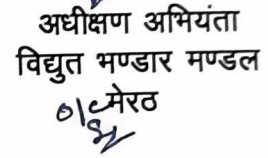 अधीक्षण अभियंता
विद्युत भण्डार मण्डल
मेरठ